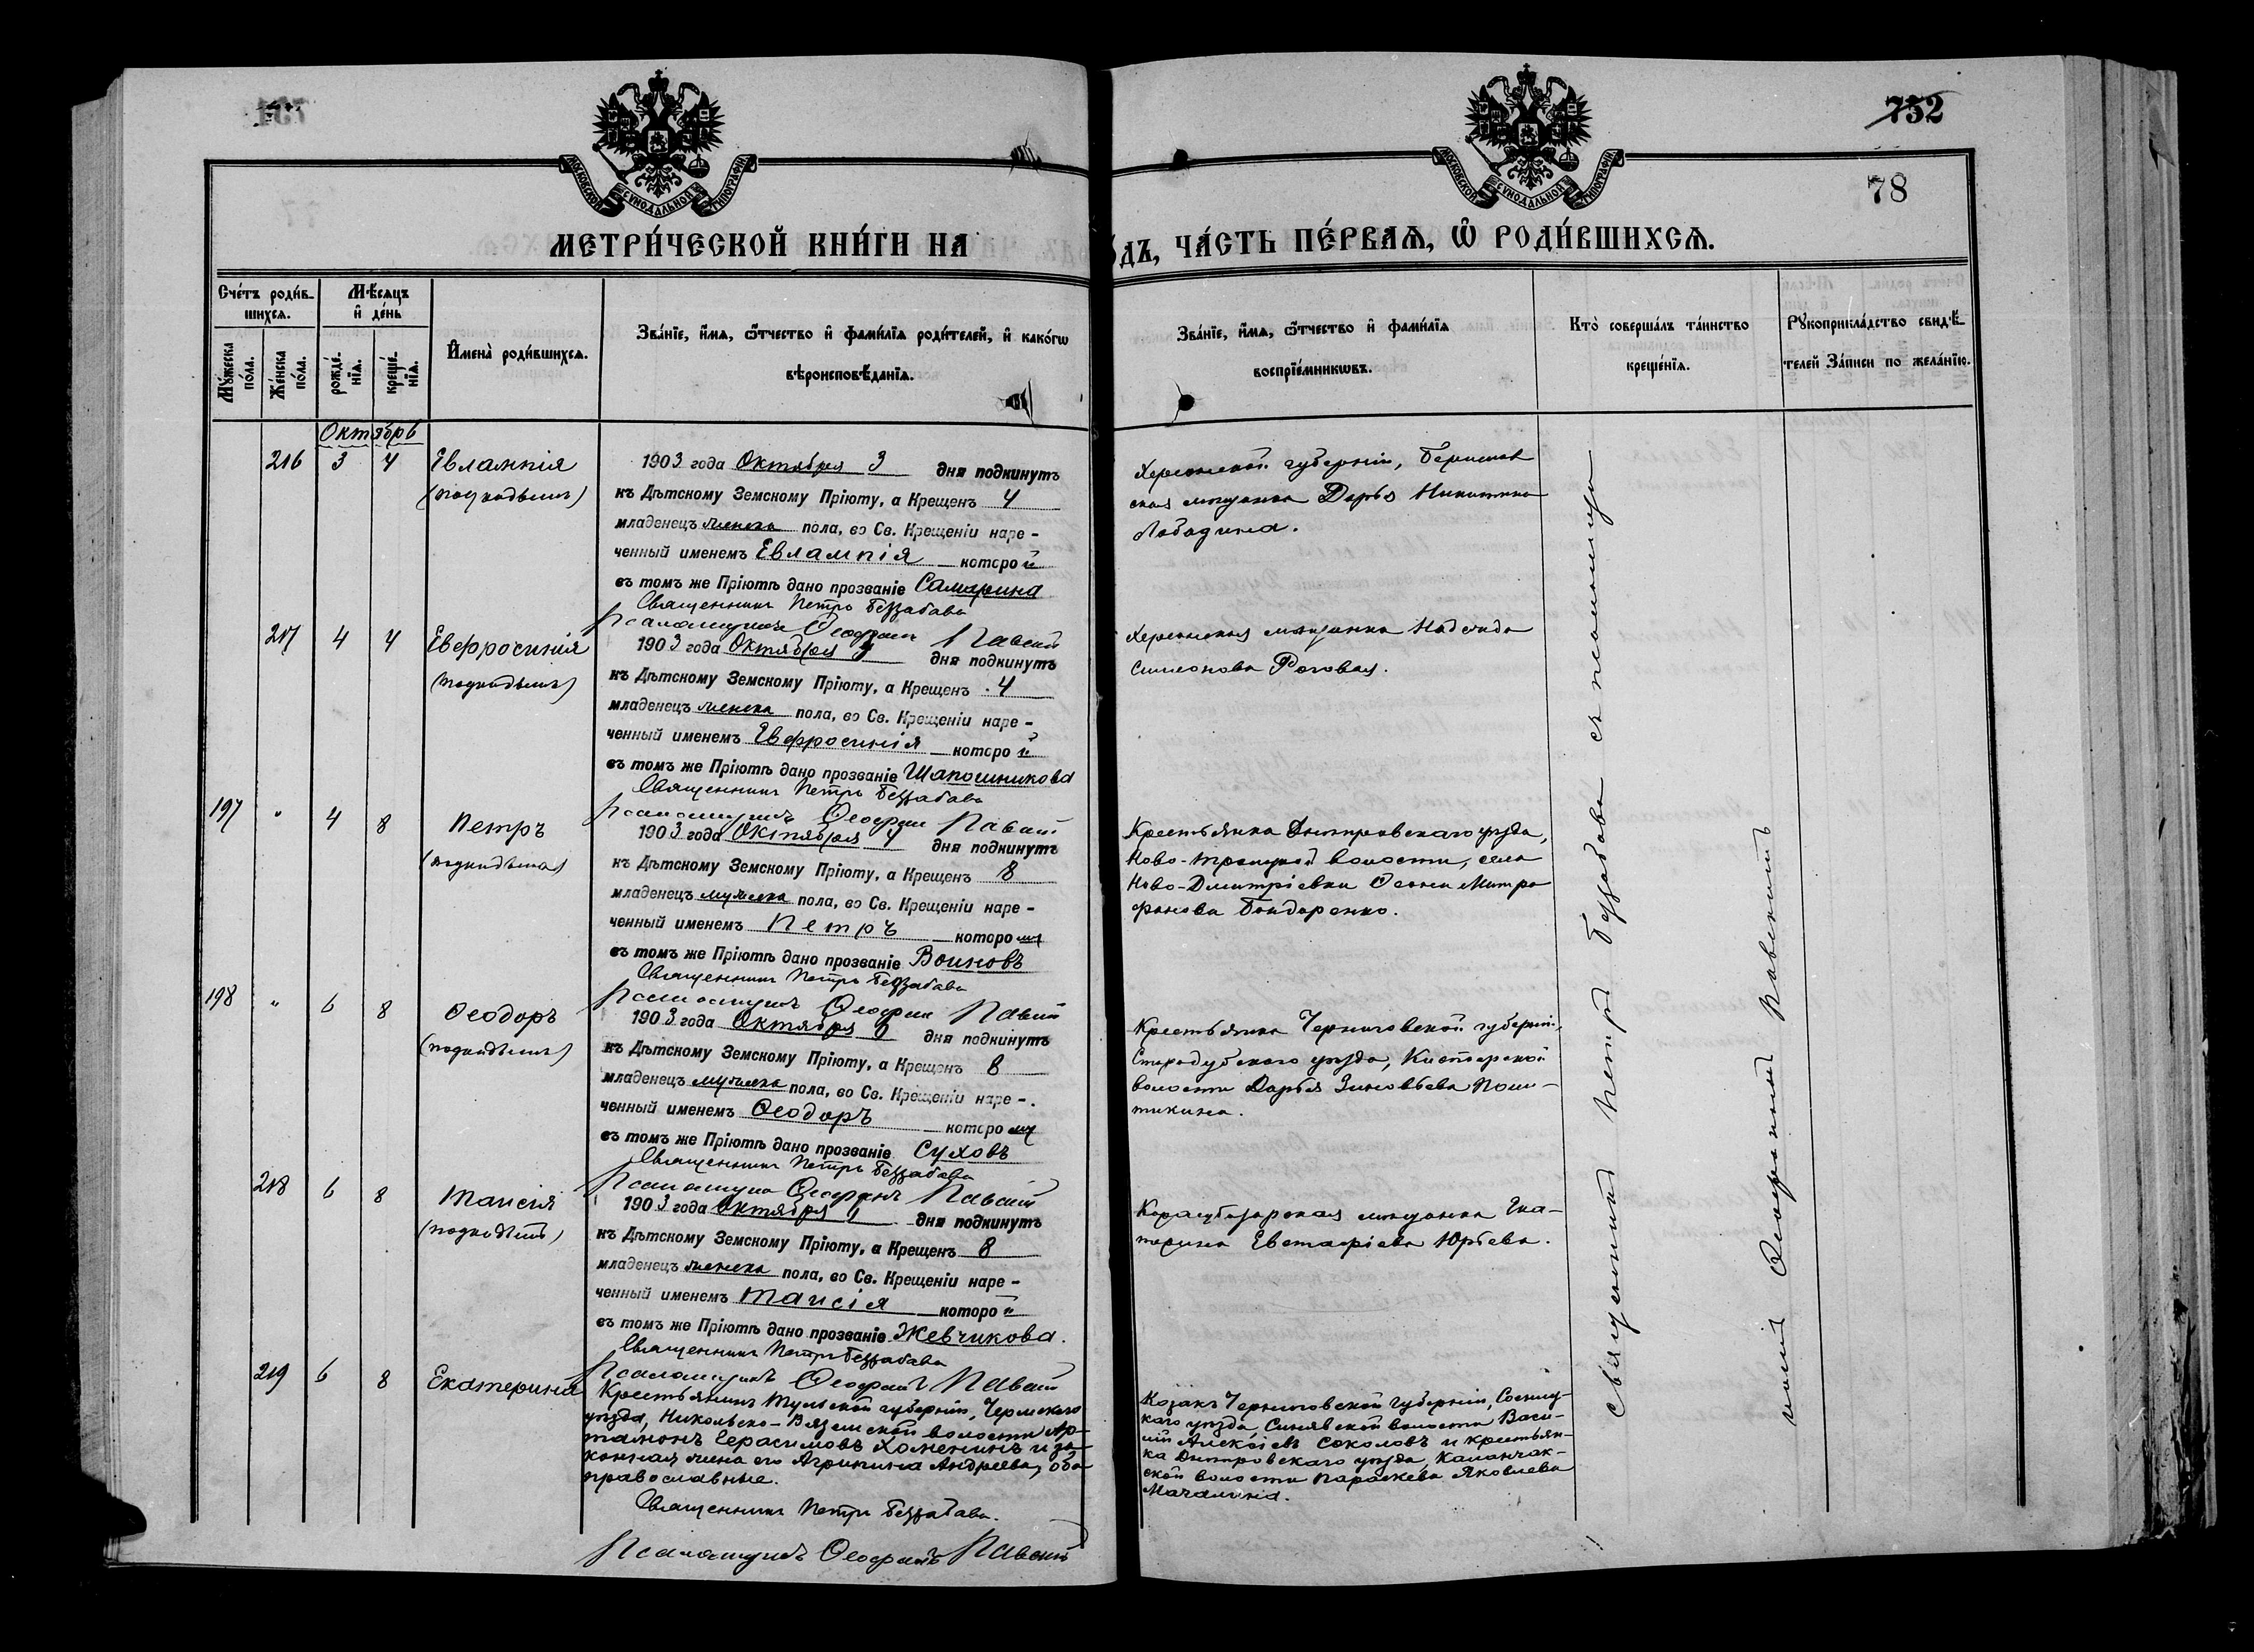 752
78
МОСКОВСКОЙ СѴНОДАЛЬНОЙ ТИПОГРАФІИ
МОСКОВСКОЙ СѴНОДАЛЬНОЙ ТИПОГРАФІИ
МЕТРИ́ЧЕСКОЙ КНИ́ГИ НА
ДЪ, ЧА́СТЬ ПЕ́РВАѦ, Ѽ РОДИ́ВШИХСѦ.
Сче́тъ роди́в-
шихсѧ.
Мѣ́сѧцъ
и҆ де́нь
Мꙋ́жеска по́ла.
Же́нска по́ла.
рожде́-
нїѧ.
креще́-
нїѧ.
И҆мена̀ роди́вшихсѧ.
Зва́нїе, и҆́мѧ, ѻ҆́тчество и҆ фами́лїѧ роди́телей, и҆ како́гѡ
вѣроисповѣ́данїѧ.
Зва́нїе, и҆́мѧ, ѻ҆́тчество и҆ фами́лїѧ
воспрїе́мникѡвъ.
Кто̀ соверша́лъ та́инство
креще́нїѧ.
Рꙋкоприкла́дство свидѣ́-
телей За́писи по жела́нїю.
Октябрь
216 3 4 Евлампія
(подкидышъ)
1903 года Октября 3 дня подкинутъ
къ Дѣтскому Земскому Пріюту, а Крещенъ 4
младенецъ женска пола, во Св. Крещеніи наре-
ченный именемъ Евлампія которой
въ томъ же Пріютѣ дано прозваніе Самарина
Священникъ Петръ Беззабава
Псаломщикъ Ѳеофанъ Павскій
Херсонской губерніи, Берислав
ская мѣщанка Дарья Никитина
Лободина.
217 4 4 Евфросинія
(подкидышъ)
1903 года Октября дня подкинутъ
къ Дѣтскому Земскому Пріюту, а Крещенъ 4
младенецъ женска пола, во Св. Крещеніи наре-
ченный именемъ Евфросинія которой
въ томъ же Пріютѣ дано прозваніе Шапошникова
Священникъ Петръ Беззабава
Псаломщикъ Ѳеофанъ Павскій
Херсонская мѣщанка Надежда
Симеонова Роговая.
197 " 4 8 Петръ
(подкидышъ)
1903 года Октября 4 дня подкинутъ
къ Дѣтскому Земскому Пріюту, а Крещенъ 8
младенецъ мужеска пола, во Св. Крещеніи наре-
ченный именемъ Петръ которому
въ томъ же Пріютѣ дано прозваніе Воиновъ
Священникъ Петръ Беззабава
Псаломщикъ Ѳеофанъ Павскій
Крестьянка Днѣпровскаго уѣзда,
Ново-Троицкой волости, села
Ново-Дмитріевки Ѳеонія Митро
фанова Бондаренко.
198 " 6 8 Ѳеодоръ
(подкидышъ)
1903 года Октября 6 дня подкинутъ
къ Дѣтскому Земскому Пріюту, а Крещенъ 8
младенецъ мужеска пола, во Св. Крещеніи наре-
ченный именемъ Ѳеодоръ которому
въ томъ же Пріютѣ дано прозваніе Суховъ
Священникъ Петръ Беззабава
Псаломщикъ Ѳеофанъ Павскій
Крестьянка Черниговской губерніи,
Стародубскаго уѣзда,
волости Дарья Зиновьева
218 6 8 Таисія
(подкидышъ)
1903 года Октября 6 дня подкинутъ
къ Дѣтскому Земскому Пріюту, а Крещенъ 8
младенецъ женска пола, во Св. Крещеніи наре-
ченный именемъ Таисія которой
въ томъ же Пріютѣ дано прозваніе Жевчикова.
Священникъ Петръ Беззабава
Псаломщикъ Ѳеофанъ Павскій
Карасубазарская мѣщанка Ека-
терина Евстафіева Юрьева.
219 6 8 Екатерина
Крестьянинъ Тульской губерніи, Чернскаго
уѣзда, Никольско-Вяземской волости Ар-
тамонъ Герасимовъ Хоменинъ и за-
конная жена его Агрипина Андреева, оба
православные.
Священникъ Петръ Беззабава.
Псаломщикъ Ѳеофанъ Павскій
Козакъ Черниговской губерніи, Сосниц-
каго уѣзда Синявской волости Васи-
лій Алексіевъ Соколовъ и крестьян-
ка Днѣпровскаго уѣзда, Каланчак-
ской волости Параскева Яковлева
Мачалина.
Священникъ Петръ Беззабава съ псаломщи
комъ Ѳеофаномъ Павскимъ